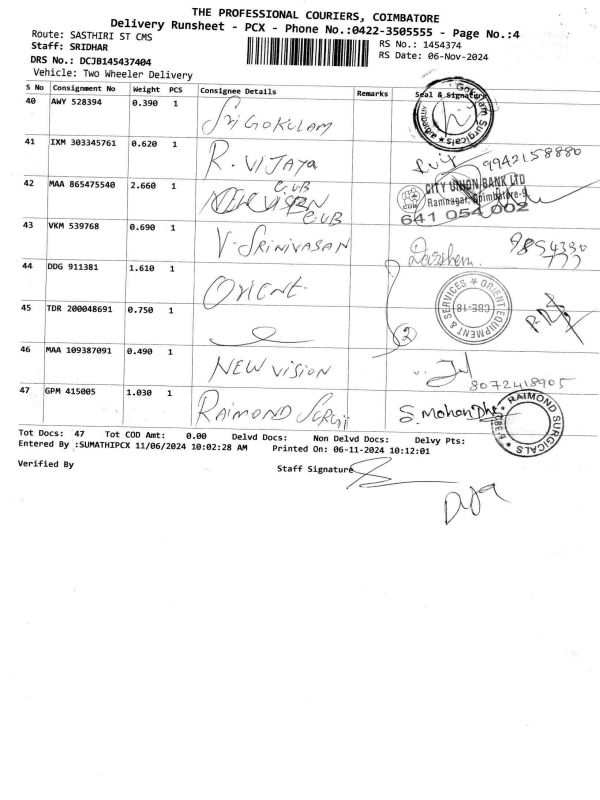 THE PROFESSIONAL COURIERS, COIMBATORE
Delivery Runsheet - PCX - Phone No.:0422-3505555 - Page No.:4
Route: SASTHIRI ST CMS
RS No.: 1454374
Staff: SRIDHAR
RS Date: 06-Nov-2024
DRS No.: DCJB145437404
Vehicle: Two Wheeler Delivery
S No Consignment No Weight PCS Consignee Details Remarks Seal & Signature
40 AWY 528394 0.390 1 SRI GOKULAM Gokulam Surgicals
41 IXM 303345761 0.620 1 R. VIJAYA 9942158880
42 MAA 865475540 2.660 1 C.UB C.UB CITY UNION BANK LTD
Ramnagar, Coimbatore-9.
CUB
641 054 002
43 VKM 539768 0.690 1 V. SRINIVASAN
44 DDG 911381 1.610 1 ORIENT ORIENT EQUIPMENT & SERVICES CBE-18
45 TDR 200048691 0.750 1 2
46 MAA 109387091 0.490 1 NEW VISION 8072418905
47 GPM 415005 1.030 1 RAIMOND S. Mohan RAIMOND SURGICALS
Tot Docs: 47 Tot COD Amt: 0.00 Delvd Docs: Non Delvd Docs: Delvy Pts:
Entered By :SUMATHIPCX 11/06/2024 10:02:28 AM Printed On: 06-11-2024 10:12:01
Verified By Staff Signature